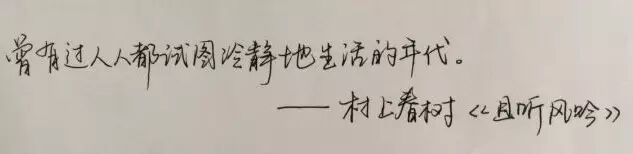 曾有过人人都试图冷静地生活的年代。
—— 村上春树《且听风吟》